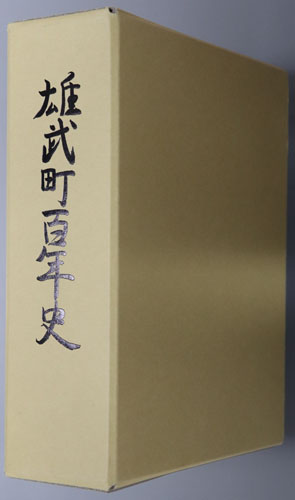 雄武町百年史